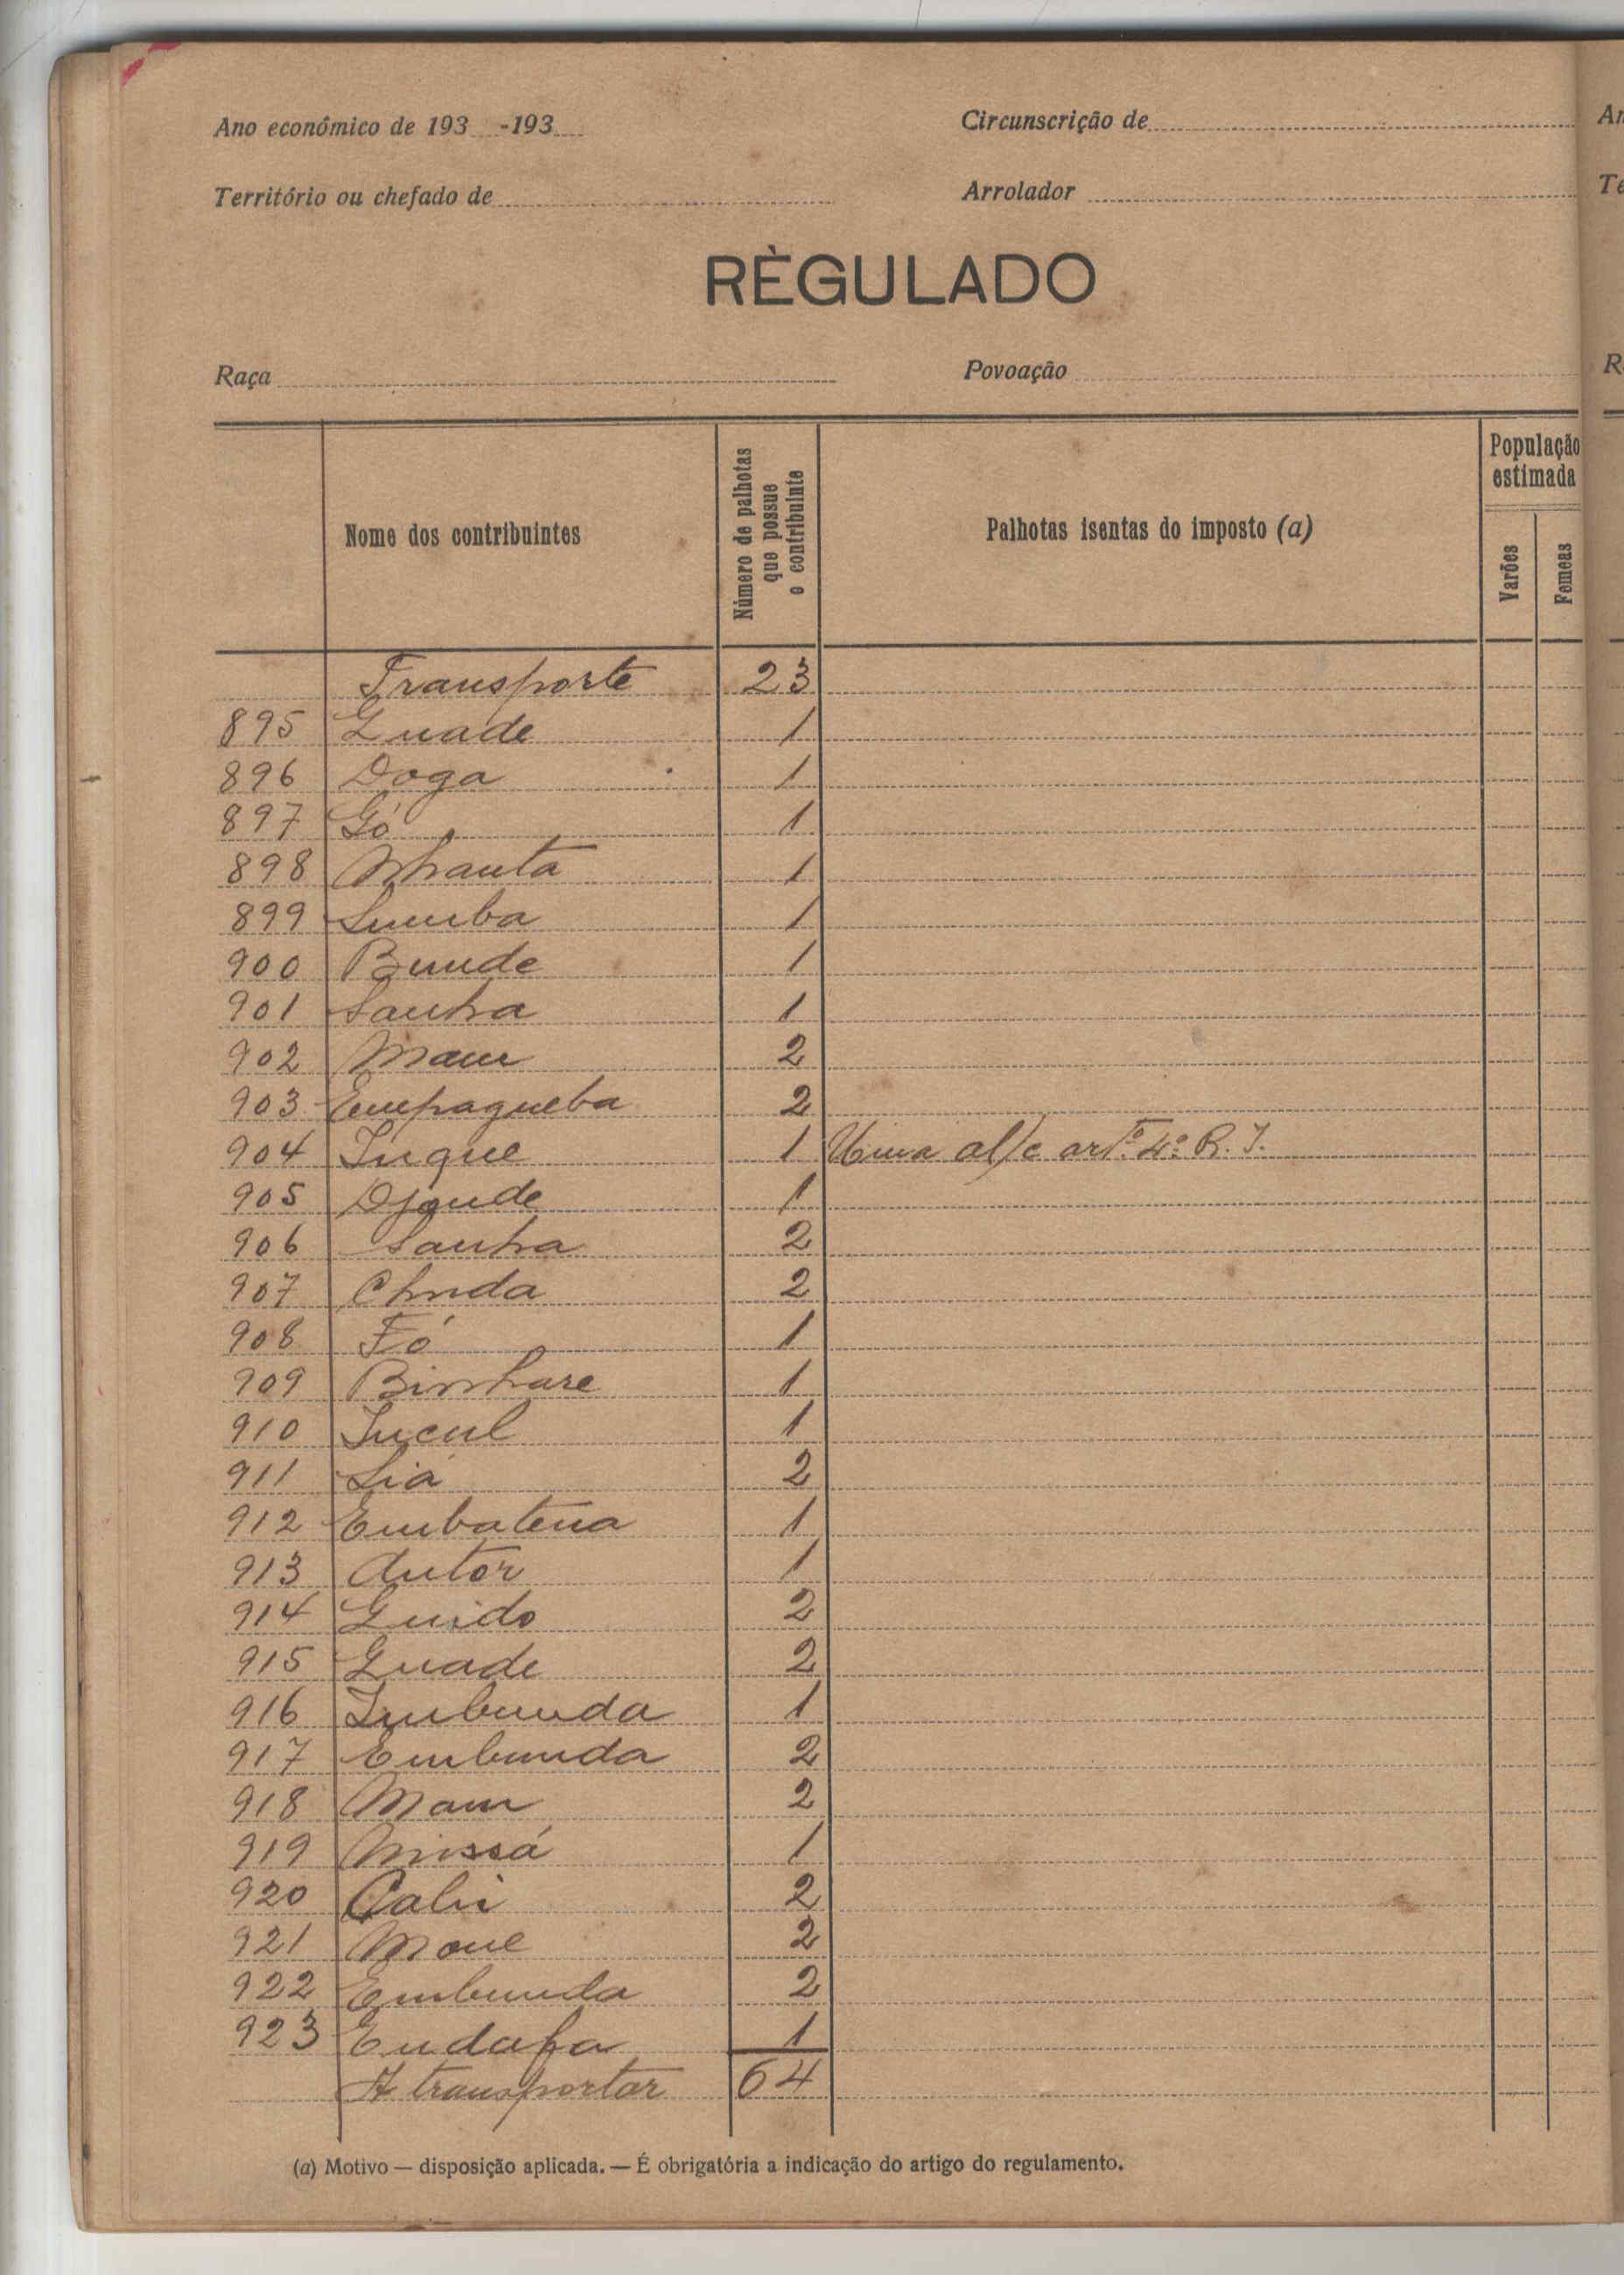 Ano económico de 193 -193
Circunscrição de
Território ou chefado de
Arrolador
RÈGULADO
Raça
Povoação
Nome dos contribuintes
Número de palhotas que possue o contribuinte
Palhotas isentas do imposto (a)
População estimada
Varões
Femeas
Transporte 23
895 Guade 1
896 Doga 1
897 Gó 1
898 Nhanta 1
899 Sumba 1
900 Bunde 1
901 Sanha 1
902 Mam 2
903 Empagueba 2
904 Inque 1 Uma al/c artº. 4º R. I.
905 Djonde 1
906 Sanha 2
907 2
908 Fó 1
909 Binhare 1
910 Incul 1
911 Siá 2
912 Embatena 1
913 Antór 1
914 Guido 2
915 Guade 2
916 Imbunda 1
917 Embunda 2
918 Mam 2
919 Missá 1
920 2
921 Mone 2
922 Embunda 2
923 Endafa 1
A transportar 64
(a) Motivo — disposição aplicada. — É obrigatória a indicação do artigo do regulamento.